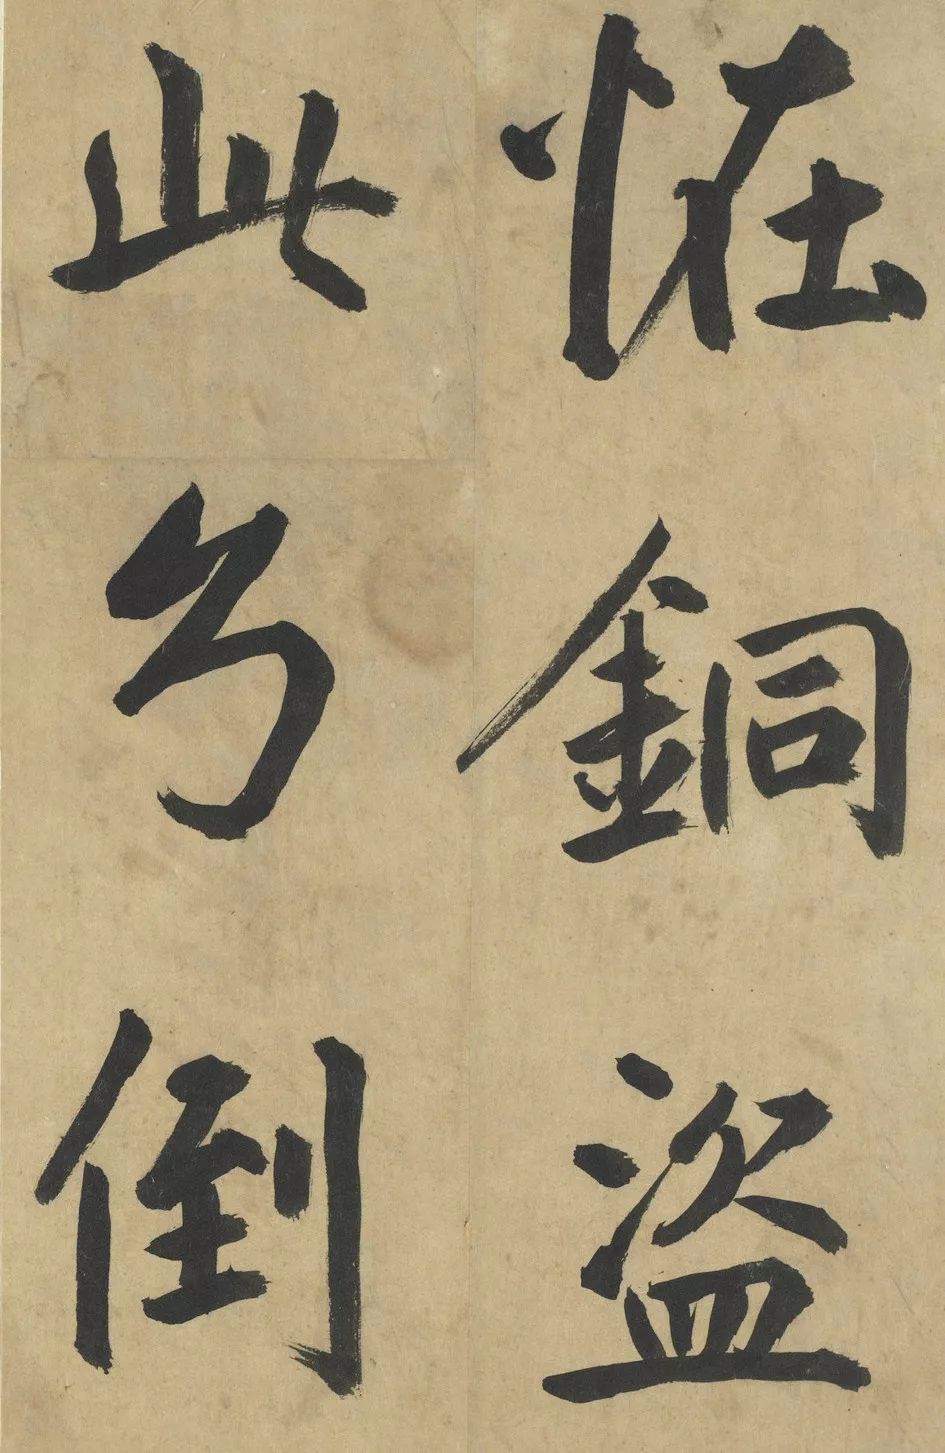 恠銅盜
此幻倒